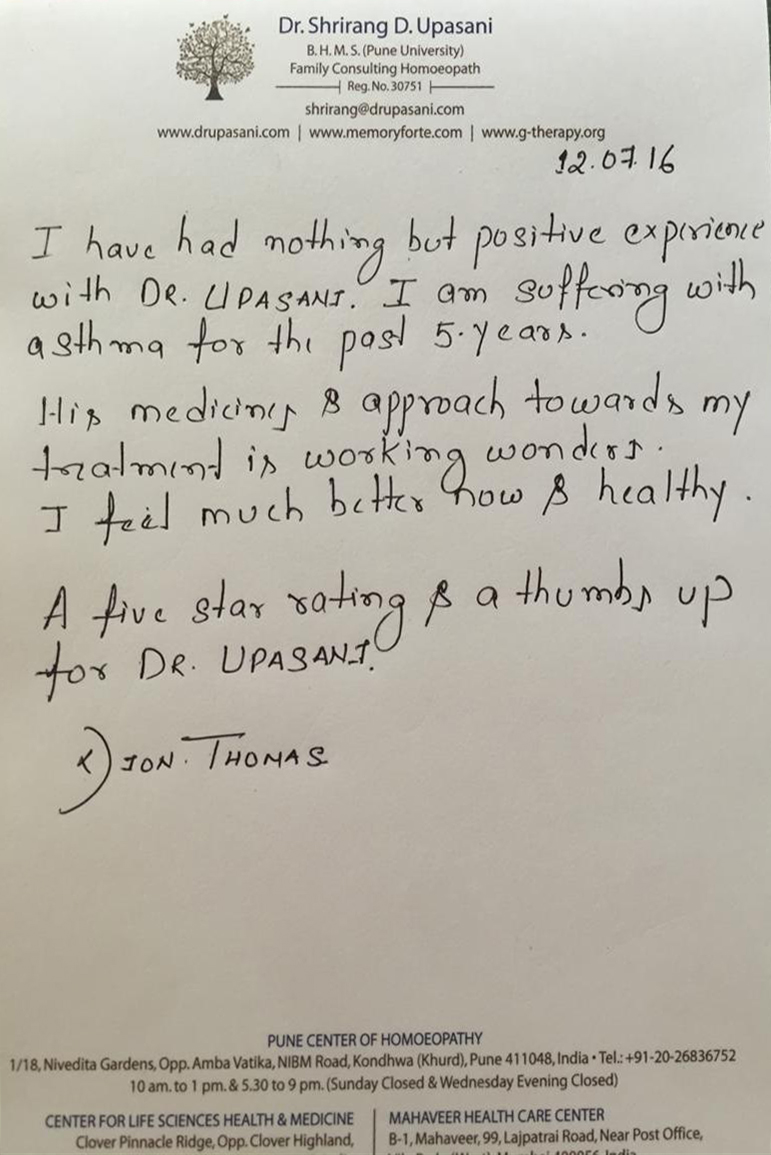 Dr. Shrirang D. Upasani
B. H. M. S. (Pune University)
Family Consulting Homoeopath
Reg. No. 30751
shrirang@drupasani.com
www.drupasani.com | www.memoryforte.com | www.g-therapy.org
12.07.16
I have had nothing but positive expirience
with DR. UPASANI. I am suffering with
asthma for the past 5 years.
His medicines & approach towards my
treatment is working wonders.
I feel much better now & healthy.
A five star rating & a thumbs up
for DR. UPASANI.
JON. THOMAS
PUNE CENTER OF HOMOEOPATHY
1/18, Nivedita Gardens, Opp. Amba Vatika, NIBM Road, Kondhwa (Khurd), Pune 411048, India • Tel.: +91-20-26836752
10 am. to 1 pm. & 5.30 to 9 pm. (Sunday Closed & Wednesday Evening Closed)
CENTER FOR LIFE SCIENCES HEALTH & MEDICINE
Clover Pinnacle Ridge, Opp. Clover Highland,
MAHAVEER HEALTH CARE CENTER
B-1, Mahaveer, 99, Lajpatrai Road, Near Post Office,